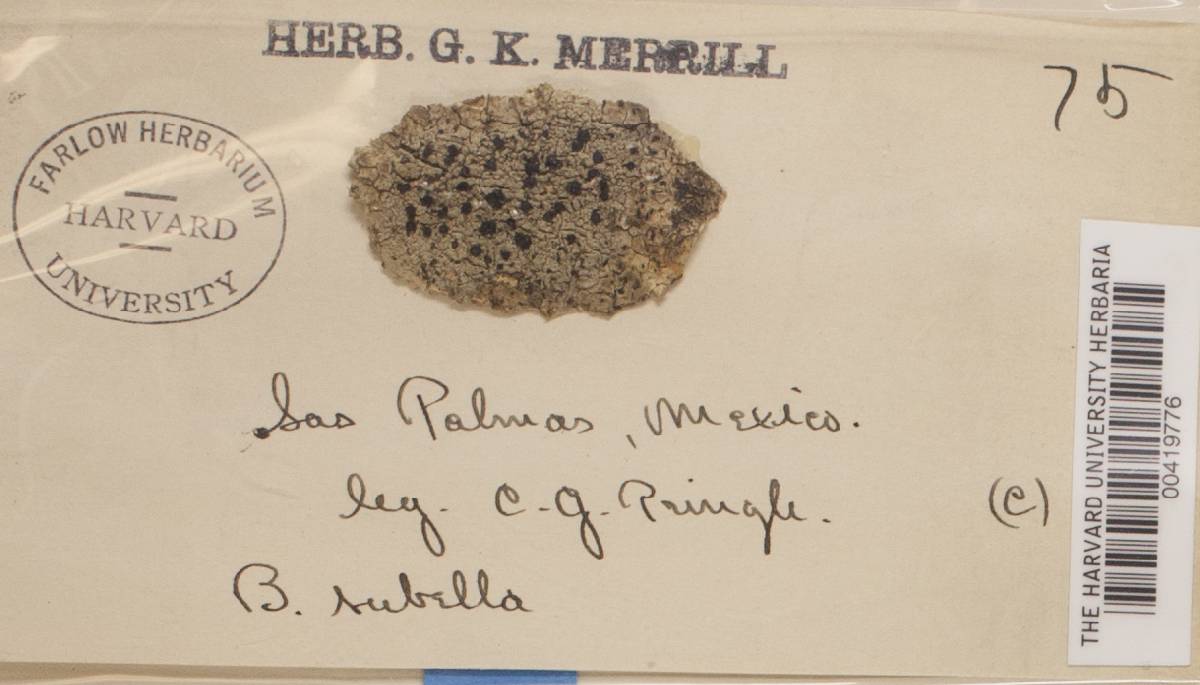 HERB. G. K. MERRILL
75
FARLOW HERBARIUM
HARVARD
UNIVERSITY
Las Palmas, Mexico.
leg. C. G. Pringle.
(c)
B. rubella
THE HARVARD UNIVERSITY HERBARIA
00419776